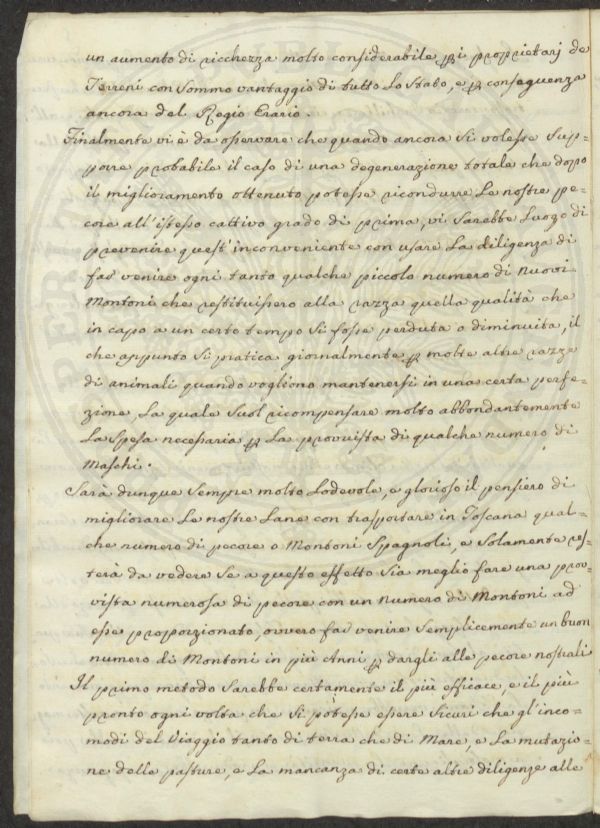 un aumento di ricchezza molto considerabile p̱ i proprietarj de
Terreni con sommo vantaggio di tutto lo Stato, e p̱ conseguenza
ancora del Regio Erario.
Finalmente vi è da osservare che quando ancora si volesse sup=
porre probabile il caso di una degenerazione totale che dopo
il miglioramento ottenuto potesse ricondurre le nostre pe=
core all'istesso cattivo grado di prima, vi sarebbe luogo di
prevenire quest'inconveniente con usare la diligenza di
far venire ogni tanto qualche piccolo numero di nuovi
Montoni che restituissero alla razza quella qualità che
in capo a un certo tempo si fosse perduta o diminuita, il
che appunto si pratica giornalmente p̱ molte altre razze
di animali quando vogliono mantenersi in una certa perfe=
zione, la quale suol ricompensare molto abbondantemente
la spesa necessaria p̱ la provvista di qualche numero di
Maschi.
Sarà dunque sempre molto lodevole, e glorioso il pensiero di
migliorare le nostre lane con trasportare in Toscana qual=
che numero di pecore o Montoni Spagnoli, e solamente res=
terà da vedere se a questo effetto sia meglio fare una prov=
vista numerosa di pecore con un numero di Montoni ad
esse proporzionato, ovvero far venire semplicemente un buon
numero di Montoni in più Anni p̱ dargli alle pecore nostrali
Il primo metodo sarebbe certamente il più efficace, e il più
pronto ogni volta che si potesse essere sicuri che gl'inco=
modi del viaggio tanto di terra che di Mare, e la mutazio=
ne delle pasture, e la mancanza di certe altre diligenze alle